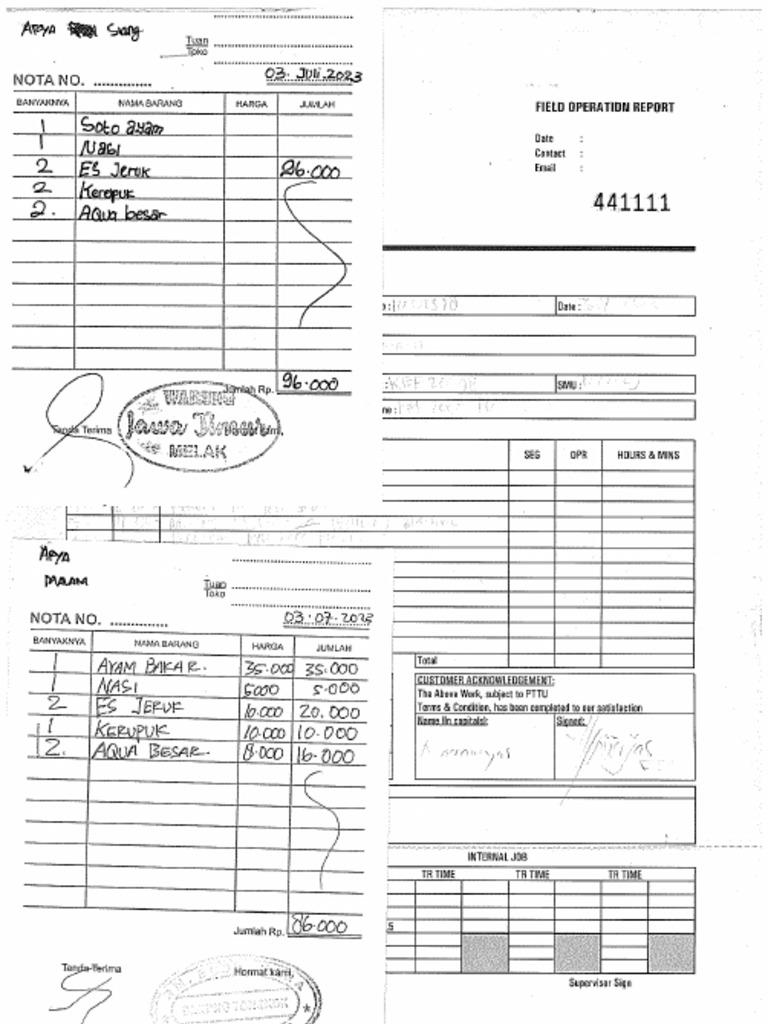 Arya Siang
Tuan
Toko
03. Juli.2023
NOTA NO. ..............
BANYAKNYA NAMA BARANG HARGA JUMLAH
1 Soto ayam
1 Nasi
2 ES Jeruk 96.000
2 Kerepuk
2. Aqua besar
Jumlah Rp. 96.000
Tanda Terima
WARUNG
Jawa Timur
MELAK
FIELD OPERATION REPORT
Date :
Contact :
Email :
441111
Date :
SMU :
SEG OPR HOURS & MINS
Arya
MALAM
Tuan
Toko
NOTA NO. ..............
03.07.2023
BANYAKNYA NAMA BARANG HARGA JUMLAH
1 AYAM BAKAR. 35.000 35.000
1 NASI 5000 5.000
2 ES JERUK 10.000 20.000
1 KERUPUK 10.000 10.000
2. AQUA BESAR. 8.000 16.000
Jumlah Rp. 86.000
Tanda Terima
Hormat kami,
Total
CUSTOMER ACKNOWLEDGEMENT:
The Above Work, subject to PTTU
Terms & Condition, has been completed to our satisfaction
Name (In capitals): Signed:
INTERNAL JOB
TR TIME TR TIME TR TIME
Supervisor Sign